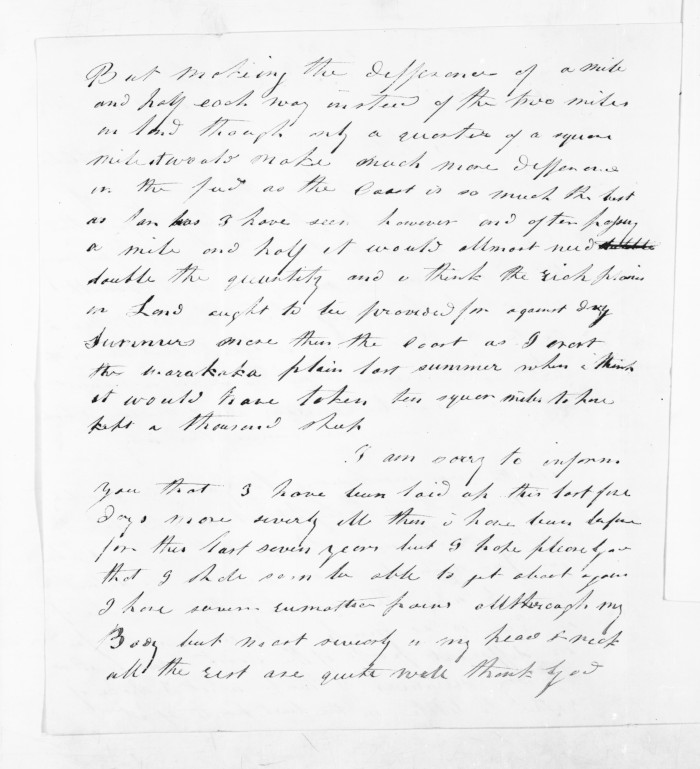 But making the difference of a mile
and half each way insted of the two miles
in land though only a quarter of a square
mile it would make much more difference
in the feed as the Coast is so much the best
as far has I have seen however and often paying
a mile and half it would allmost need
double the quantity and i think the rich plains
in Land aught to be provided for against dry
Summers more then the Coast as I crost
the warakaka plain last summer when i think
it would have taken ten squar miles to have
keept a thousand sheep
I am sorry to inform
you that I have been laid up this last five
days more severly ill then i have been before
for this last seven years but I hope please God
that I shale soon be able to get about again
I have severe rumattic pains allthrough my
Body but most severly in my head & neck
all the rest are quite well thank God